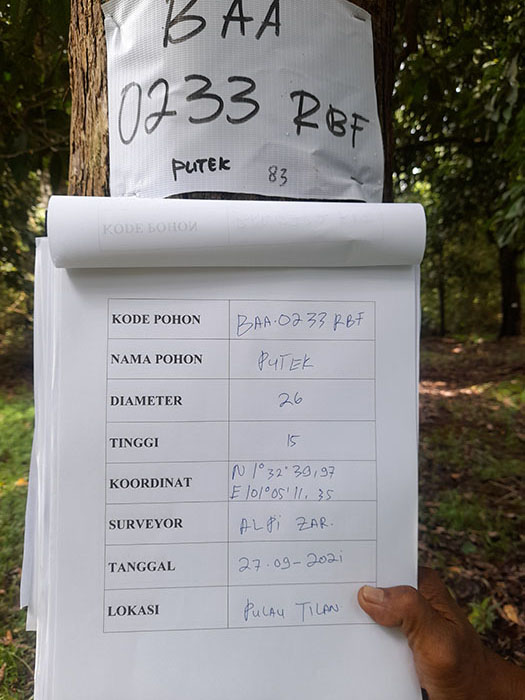 BAA
0233 RBF
PUTEK 83
KODE POHON BAA.0233 RBF
NAMA POHON PUTEK
DIAMETER 26
TINGGI 15
KOORDINAT N 1°32'39,97
E 101°05'11,35
SURVEYOR ALPI ZAR.
TANGGAL 27-09-2021
LOKASI PULAU TILAN